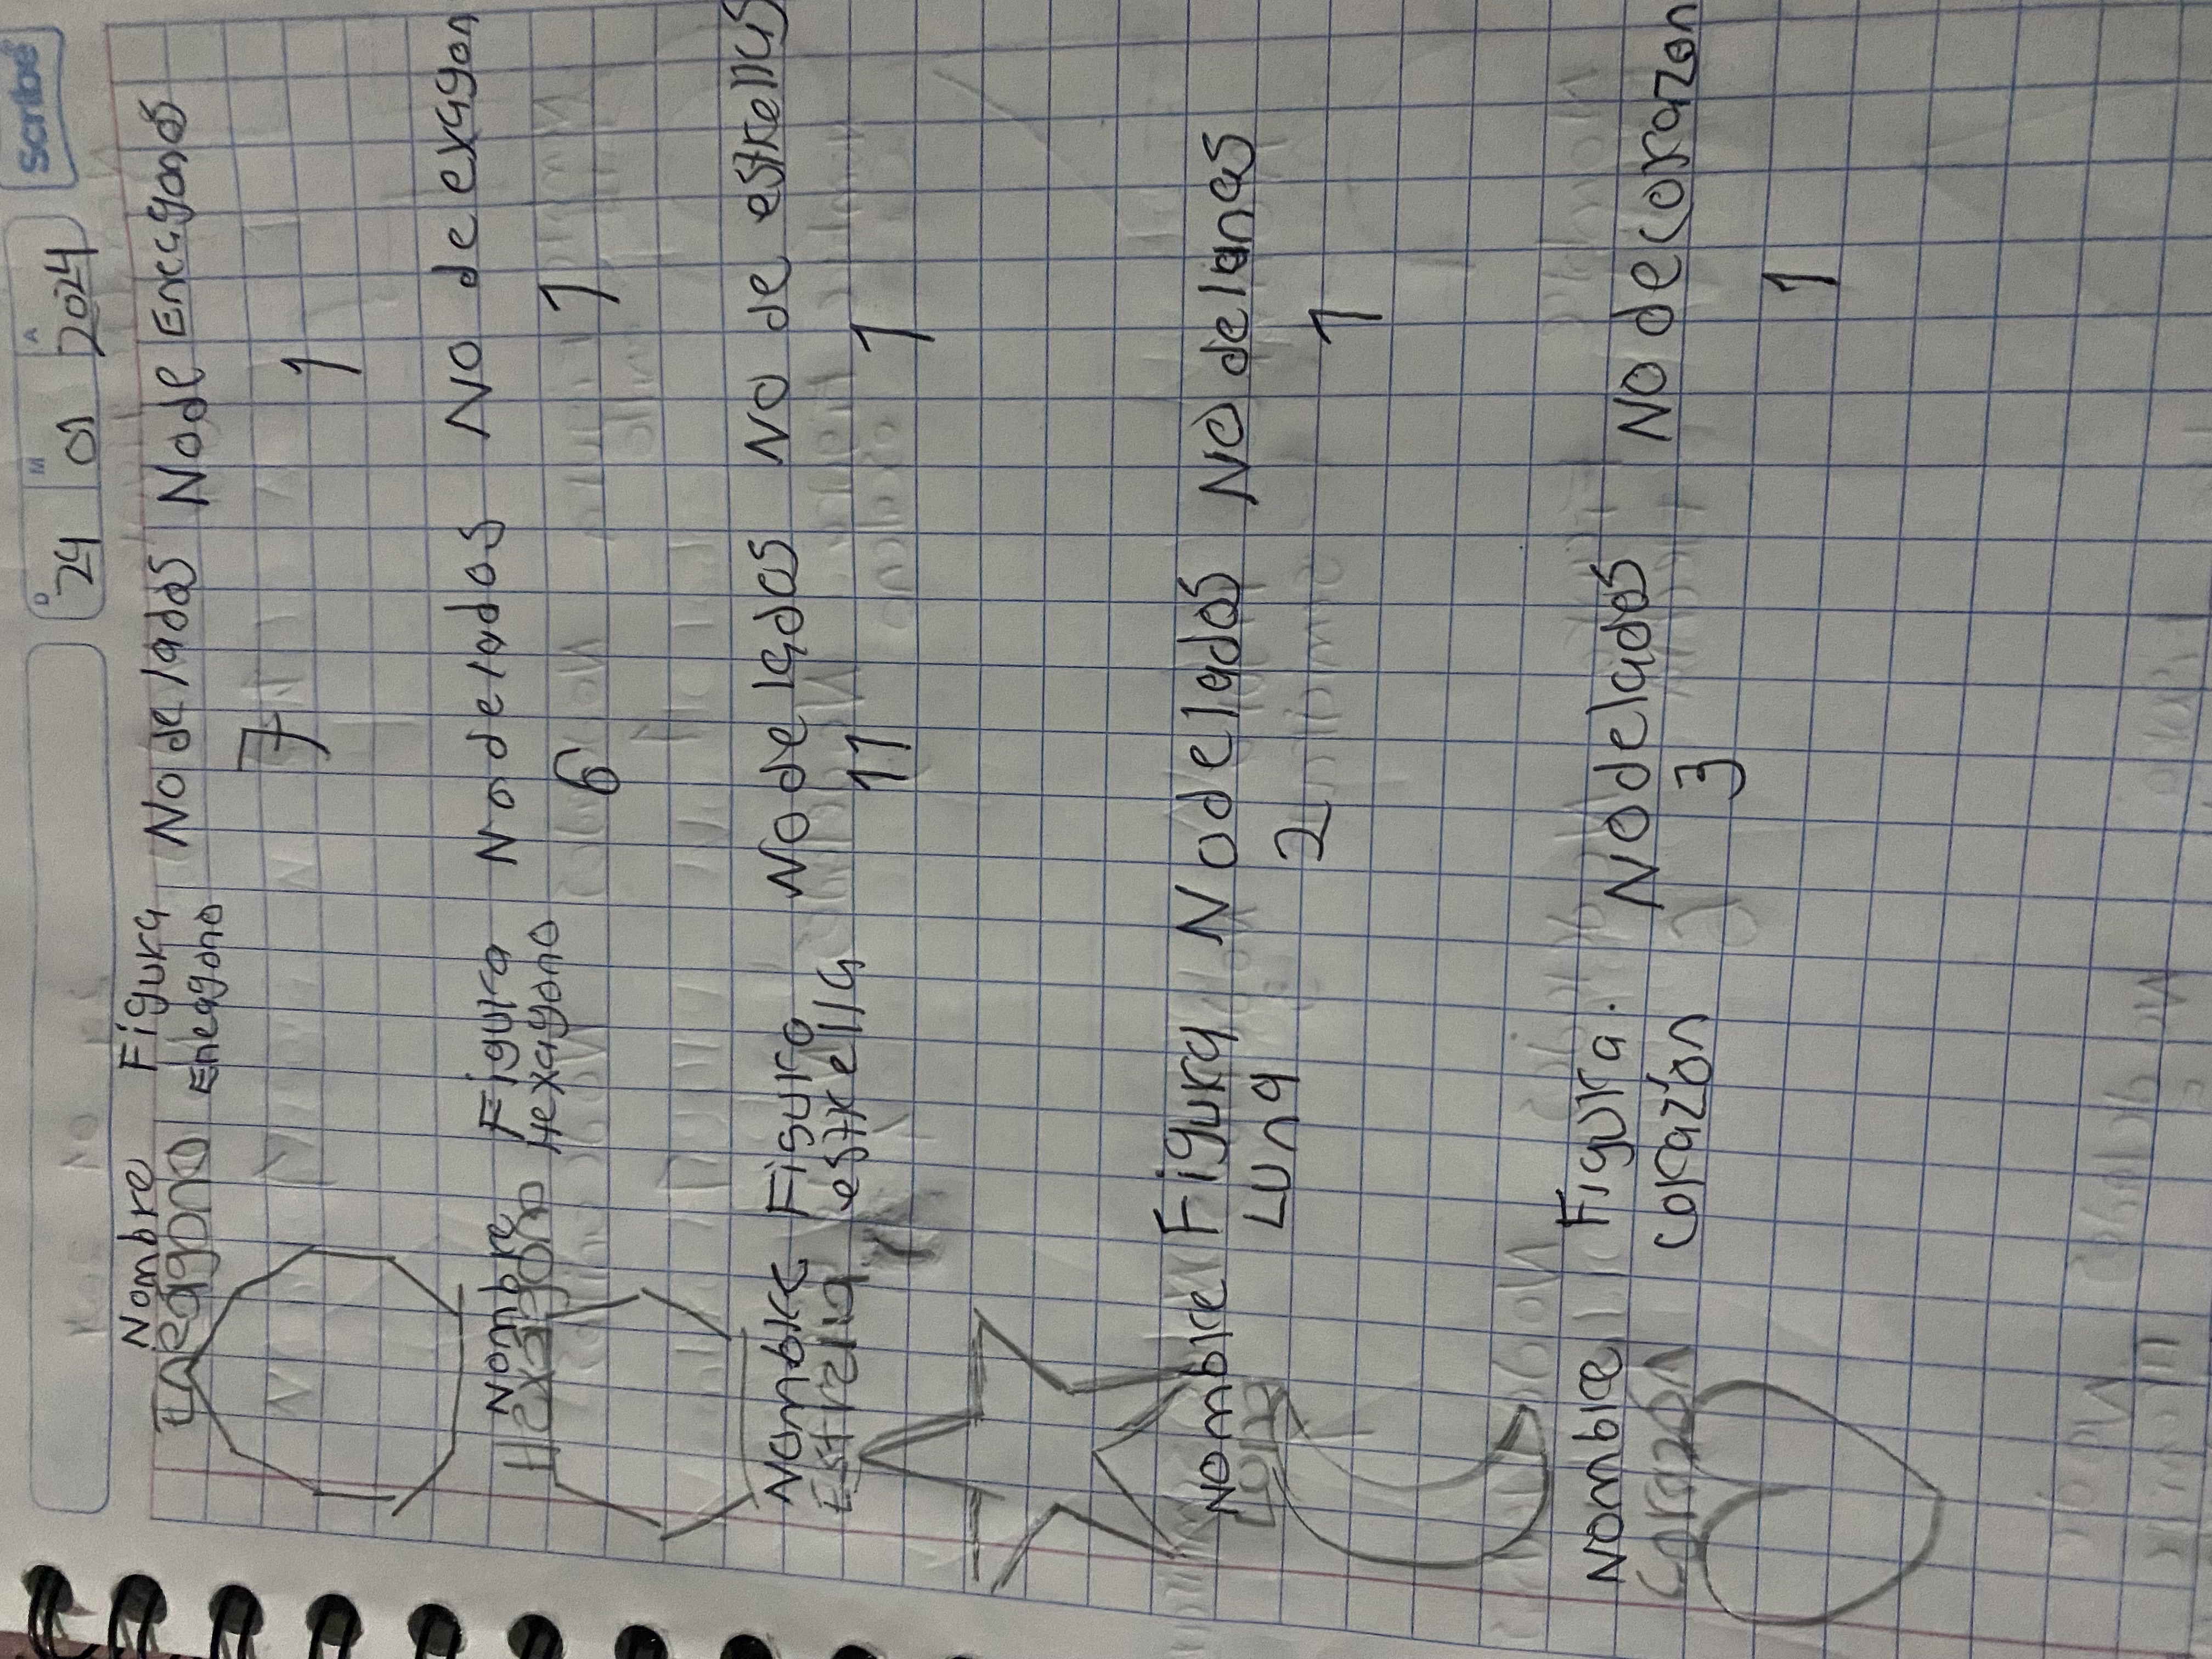 Scribe
D M A
24 01 2024
Nombre Figura No de lados No de Eneagonos
Eneagono Eneagono 7 1
Nombre Figura No de lados No de exagon
Hexagono Hexagono 6 1
Nombre Figura No de lados No de estrellas
Estrella estrella 11 1
Nombre Figura No de lados No de lunas
Luna Luna 2 1
Nombre Figura. No de lados No de corazon
Corazon corazón 3 1